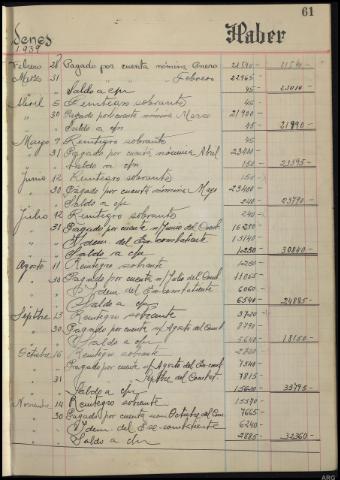 61
Haber
1939
Febrero 28 Pagado por cuenta nómina Enero 21590- 21590-
Marzo 31 " " Febrero 22965-
" " Saldo a c/n 45- 23010-
Abril 5 Reintegro sobrante 45-
" 30 Pagado por cuenta nómina Marzo 21900-
" " Saldo a c/n 45 21990-
Mayo 9 Reintegro sobrante 45-
" 31 Pagado por cuenta nómina Abril
" " Saldo a c/n 150- 23595-
Junio 12 Reintegro sobrante 150-
" 30 Pagado por cuenta nómina Mayo 23400-
" " Saldo a c/n 240- 23790-
Julio 12 Reintegro sobrante 240-
" 31 Pagado por cuenta n/ Junio del Comb.
" " Idem del Ex-combatiente 13140-
" " Saldo a c/n 1230- 30840-
Agosto 11 Reintegro sobrante 1230-
" 30 Pagado por cuenta n/ Julio del Comb.
" " Idem del Ex-combatiente 6060-
" " Saldo a c/n 6540- 24885-
Septbre 13 Reintegro sobrante
" 30 Pagado por cuenta n/ Agosto del Comb.
" " Saldo a c/n 5640- 18150-
Octubre 16 Reintegro sobrante
" " Pagado por cuenta n/ Agosto del Ex-comb. 7540-
" 31 " " Septbre del Combat. 7815-
" " Saldo a c/n 15600- 33795-
Noviembre 14 Reintegro sobrante 15590-
" 30 Pagado por cuenta nom Octubre del Com. 7665-
" " Idem del Ex-combatiente 6240-
" " Saldo a c/n 2885- 32360-
ARG